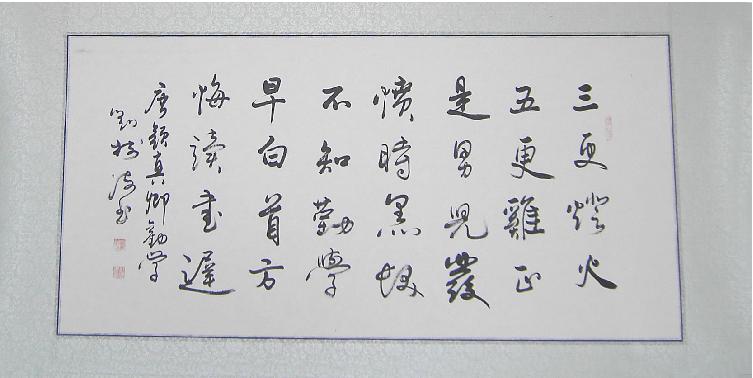 三更燈火
五更雞正
是男兒發
憤時黑髮
不知勤學
早白首方
悔讀書遲
唐顏真卿勸學
劉樹书